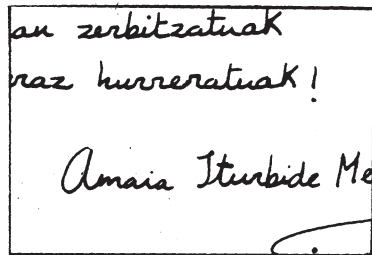 au zerbitzatuak
raz hurreratuak!
Amaia Iturbide Me